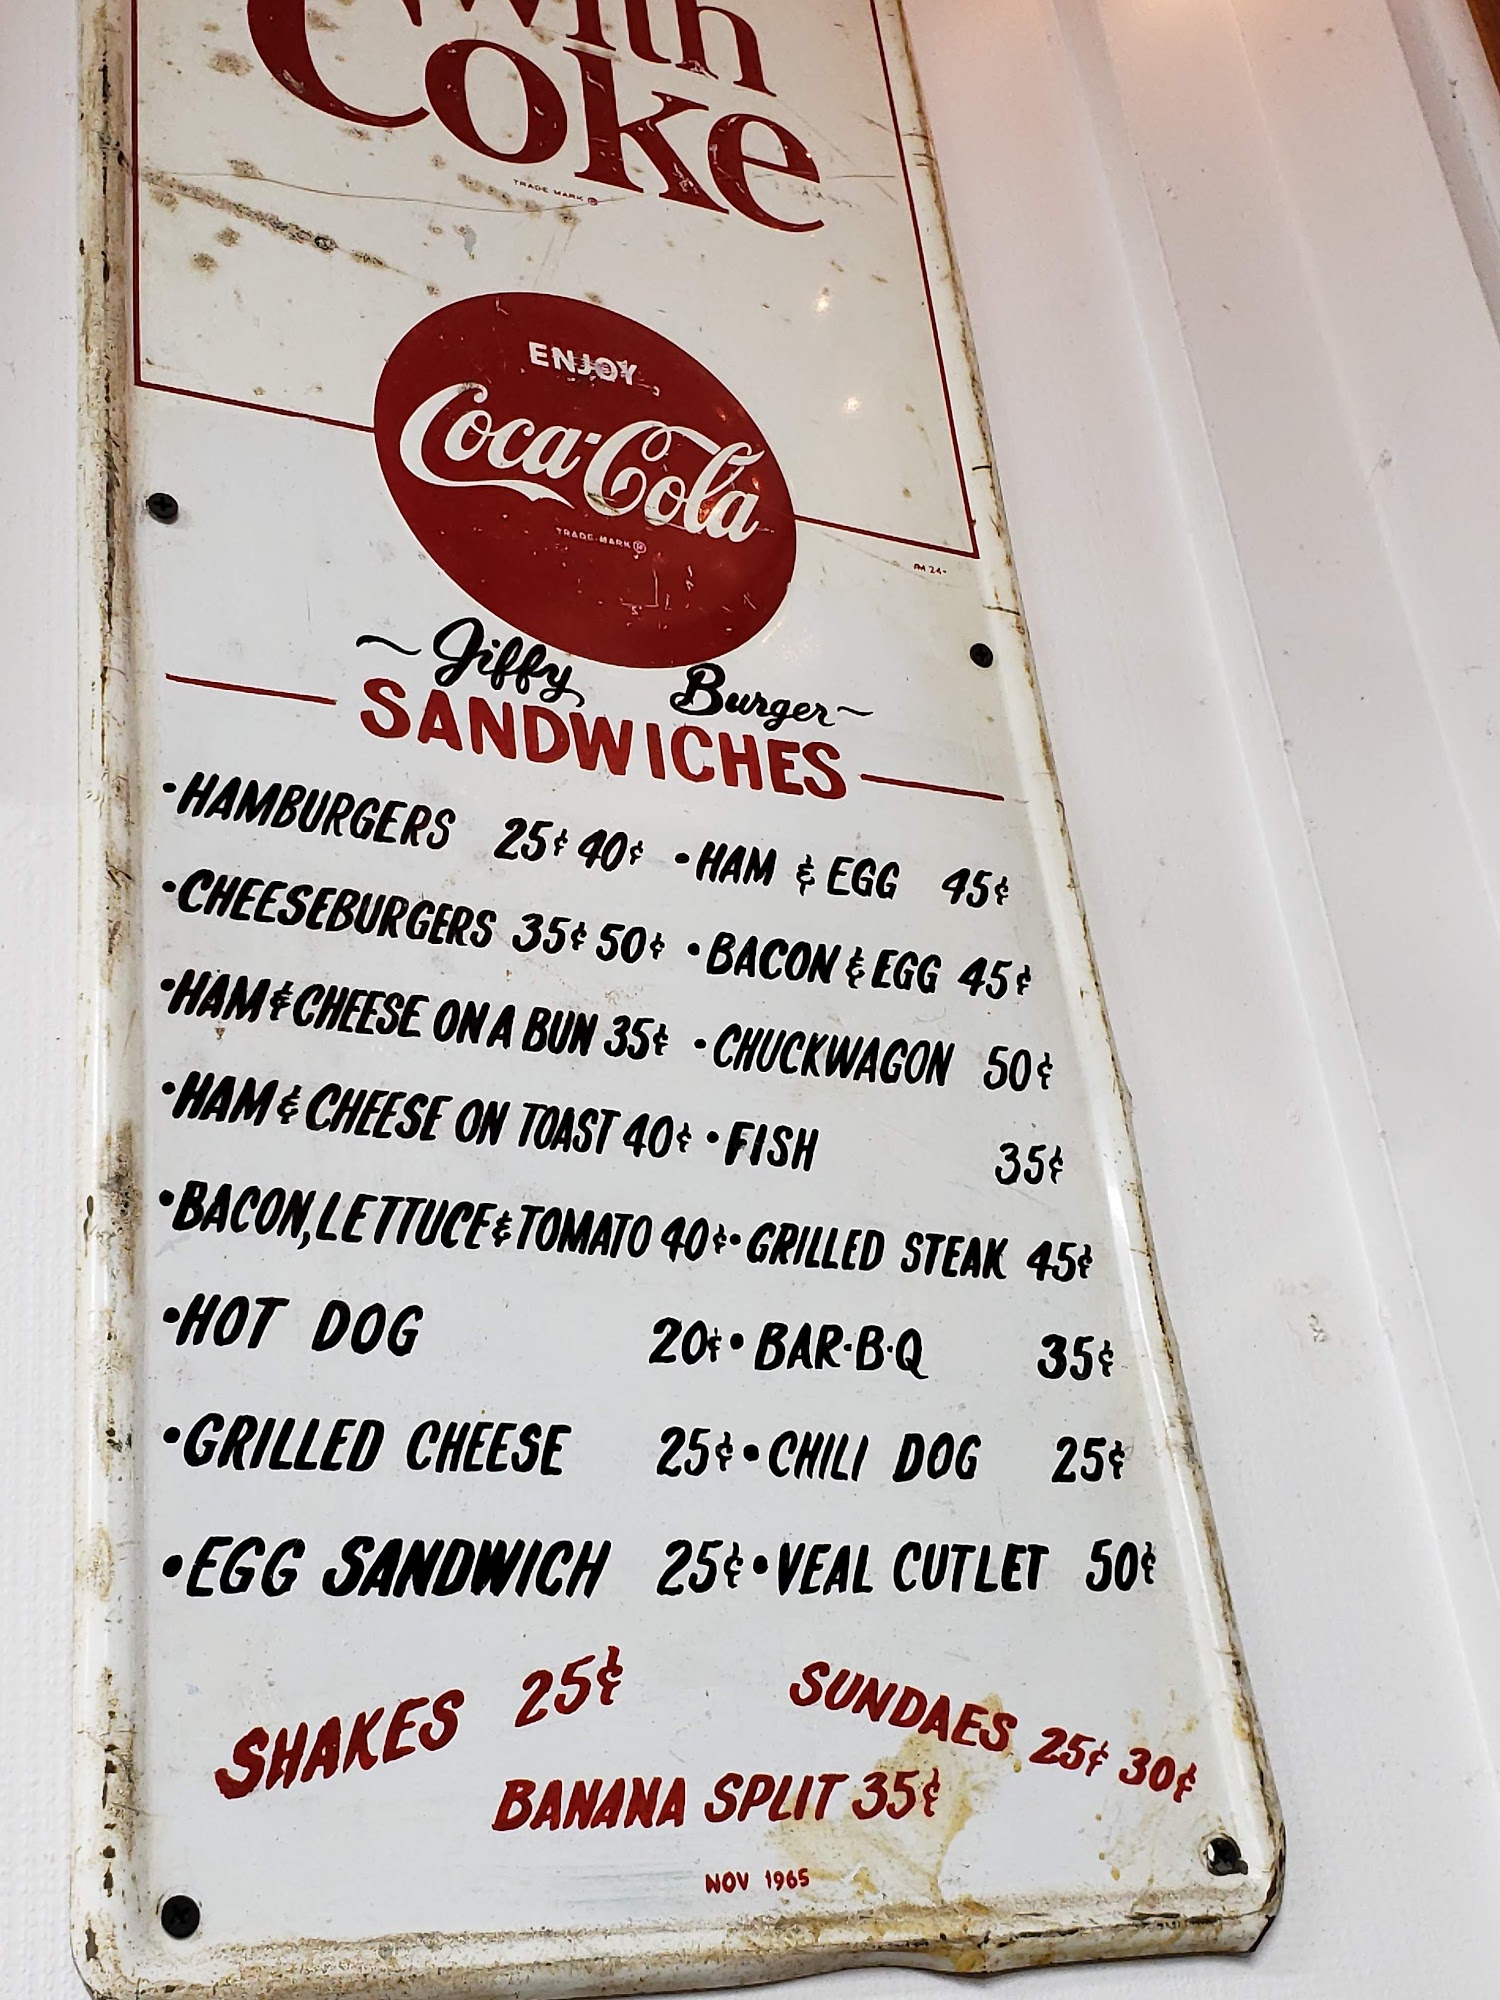 with
Coke
TRADE MARK ®
ENJOY
Coca-Cola
TRADE-MARK ®
~ Jiffy Burger ~
SANDWICHES
•HAMBURGERS 25¢ 40¢ •HAM & EGG 45¢
•CHEESEBURGERS 35¢ 50¢ •BACON & EGG 45¢
•HAM & CHEESE ON A BUN 35¢ •CHUCKWAGON 50¢
•HAM & CHEESE ON TOAST 40¢ •FISH 35¢
•BACON, LETTUCE & TOMATO 40¢ •GRILLED STEAK 45¢
•HOT DOG 20¢ •BAR-B-Q 35¢
•GRILLED CHEESE 25¢ •CHILI DOG 25¢
•EGG SANDWICH 25¢ •VEAL CUTLET 50¢
SHAKES 25¢ SUNDAES 25¢ 30¢
BANANA SPLIT 35¢
NOV 1965